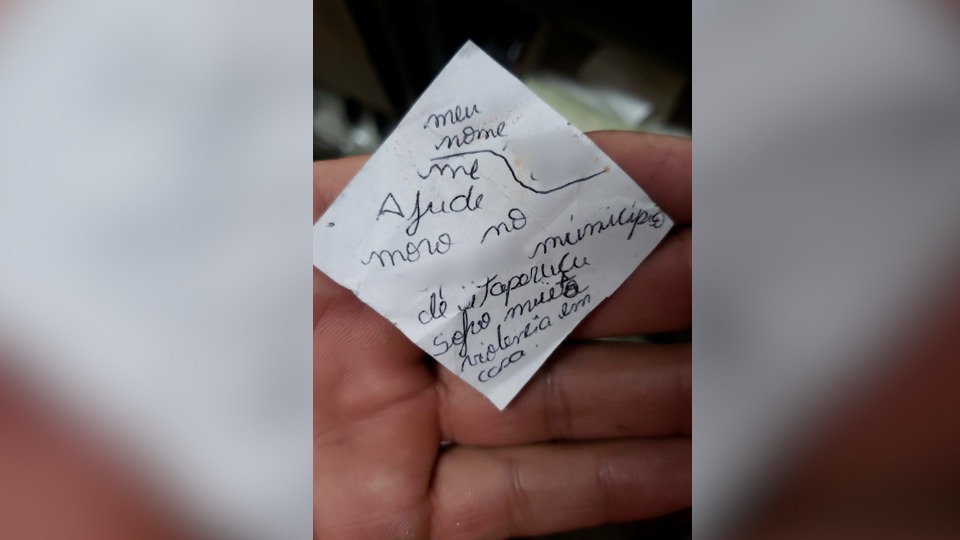 meu
nome
me
Ajude
moro no município
de itaporucu
sofro muita
violencia em
casa.